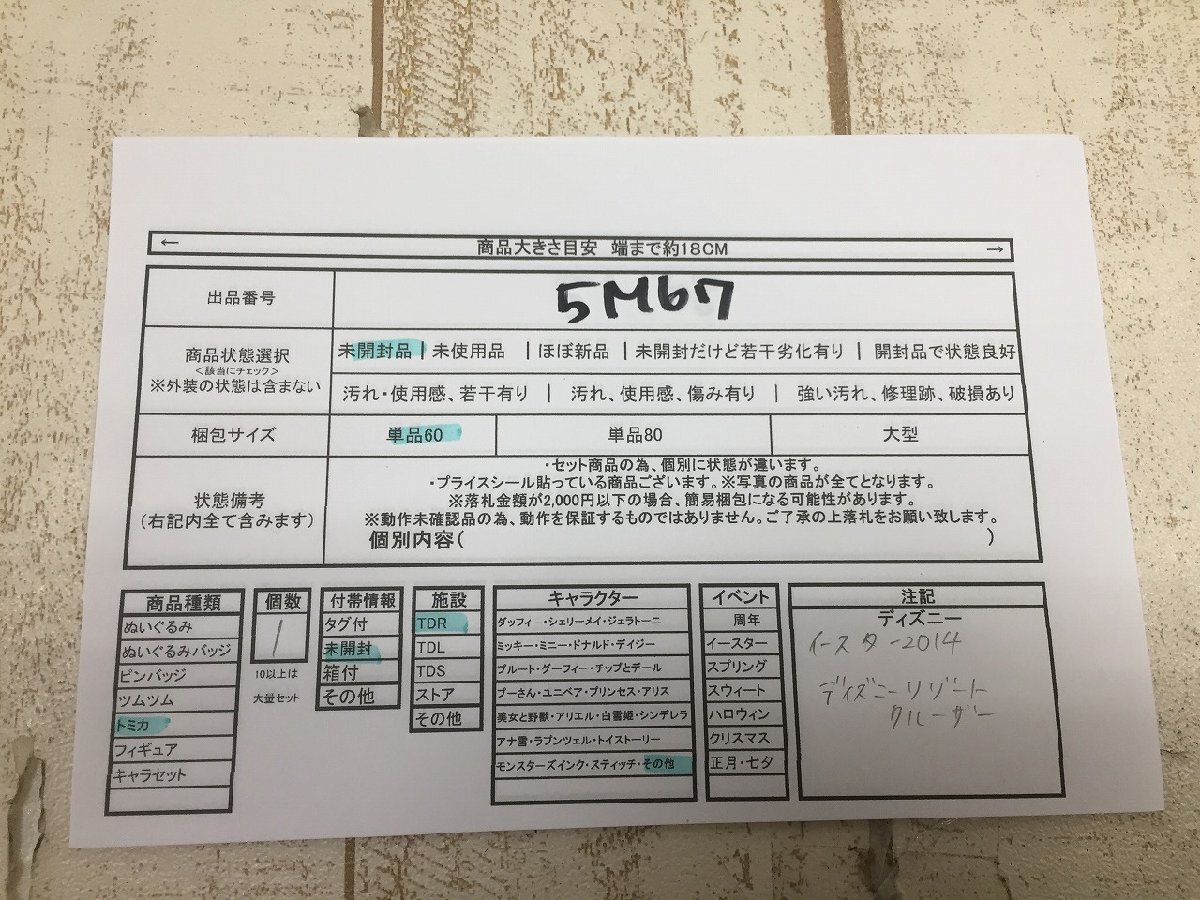 ← 商品大きさ目安 端まで約18CM →
出品番号 5M67
商品状態選択
<該当にチェック>
※外装の状態は含まない
未開封品 | 未使用品 | ほぼ新品 | 未開封だけど若干劣化有り | 開封品で状態良好
汚れ・使用感、若干有り | 汚れ、使用感、傷み有り | 強い汚れ、修理跡、破損あり
梱包サイズ 単品60 単品80 大型
状態備考
(右記内全て含みます)
・セット商品の為、個別に状態が違います。
・プライスシール貼っている商品ございます。※写真の商品が全てとなります。
※落札金額が2,000円以下の場合、簡易梱包になる可能性があります。
※動作未確認品の為、動作を保証するものではありません。ご了承の上落札をお願い致します。
個別内容( )
商品種類
ぬいぐるみ
ぬいぐるみバッジ
ピンバッジ
ツムツム
トミカ
フィギュア
キャラセット
個数
1
10以上は
大量セット
付帯情報
タグ付
未開封
箱付
その他
施設
TDR
TDL
TDS
ストア
その他
キャラクター
ダッフィー・シェリーメイ・ジェラトーニ
ミッキー・ミニー・ドナルド・デイジー
プルート・グーフィー・チップとデール
プーさん・ユニベア・プリンセス・アリス
美女と野獣・アリエル・白雪姫・シンデレラ
アナ雪・ラプンツェル・トイストーリー
モンスターズインク・スティッチ・その他
イベント
周年
イースター
スプリング
スウィート
ハロウィン
クリスマス
正月・七夕
注記
ディズニー
イースター2014
ディズニーリゾート
クルーザー